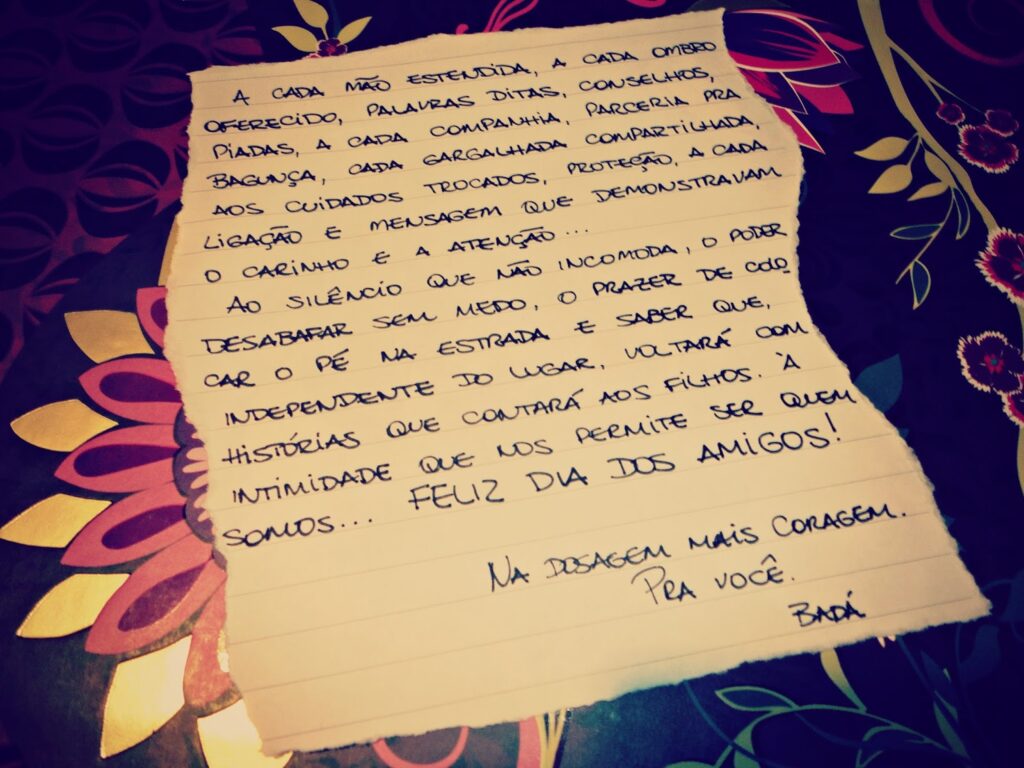 A CADA MÃO ESTENDIDA, A CADA OMBRO
OFERECIDO, PALAVRAS DITAS, CONSELHOS,
PIADAS, A CADA COMPANHIA, PARCERIA PRA
BAGUNÇA, CADA GARGALHADA COMPARTILHADA,
AOS CUIDADOS TROCADOS, PROTEÇÃO, A CADA
LIGAÇÃO E MENSAGEM QUE DEMONSTRAVAM
O CARINHO E A ATENÇÃO...
AO SILÊNCIO QUE NÃO INCOMODA, O PODER
DESABAFAR SEM MEDO, O PRAZER DE COLO
CAR O PÉ NA ESTRADA E SABER QUE,
INDEPENDENTE DO LUGAR, VOLTARÁ COM
HISTÓRIAS QUE CONTARÁ AOS FILHOS. À
INTIMIDADE QUE NOS PERMITE SER QUEM
SOMOS... FELIZ DIA DOS AMIGOS!
NA DOSAGEM MAIS CORAGEM.
PRA VOCÊ.
BADÁ